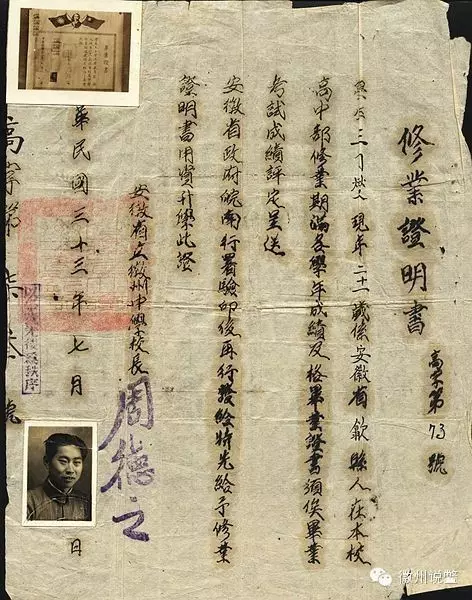 修業證明書
高字第73號
現年二十一歲係安徽省歙縣人在本校
高中部修業期滿各學年成績及格畢業證書須俟畢業
考試成績評定呈送
安徽省政府皖南行署驗印後再行發給特先給予修業
證明書用資升學此證
安徽省立徽州中學校長
周德之
華民國三十三年七月
日
高字第柒叁號
畢業證書
徽州说鳖